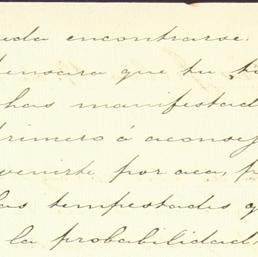 uda encontrarse.
ensara que tu
has manifestad
primero á aconsej
venirte por aca, p
las tempestades q
la probabilidad,